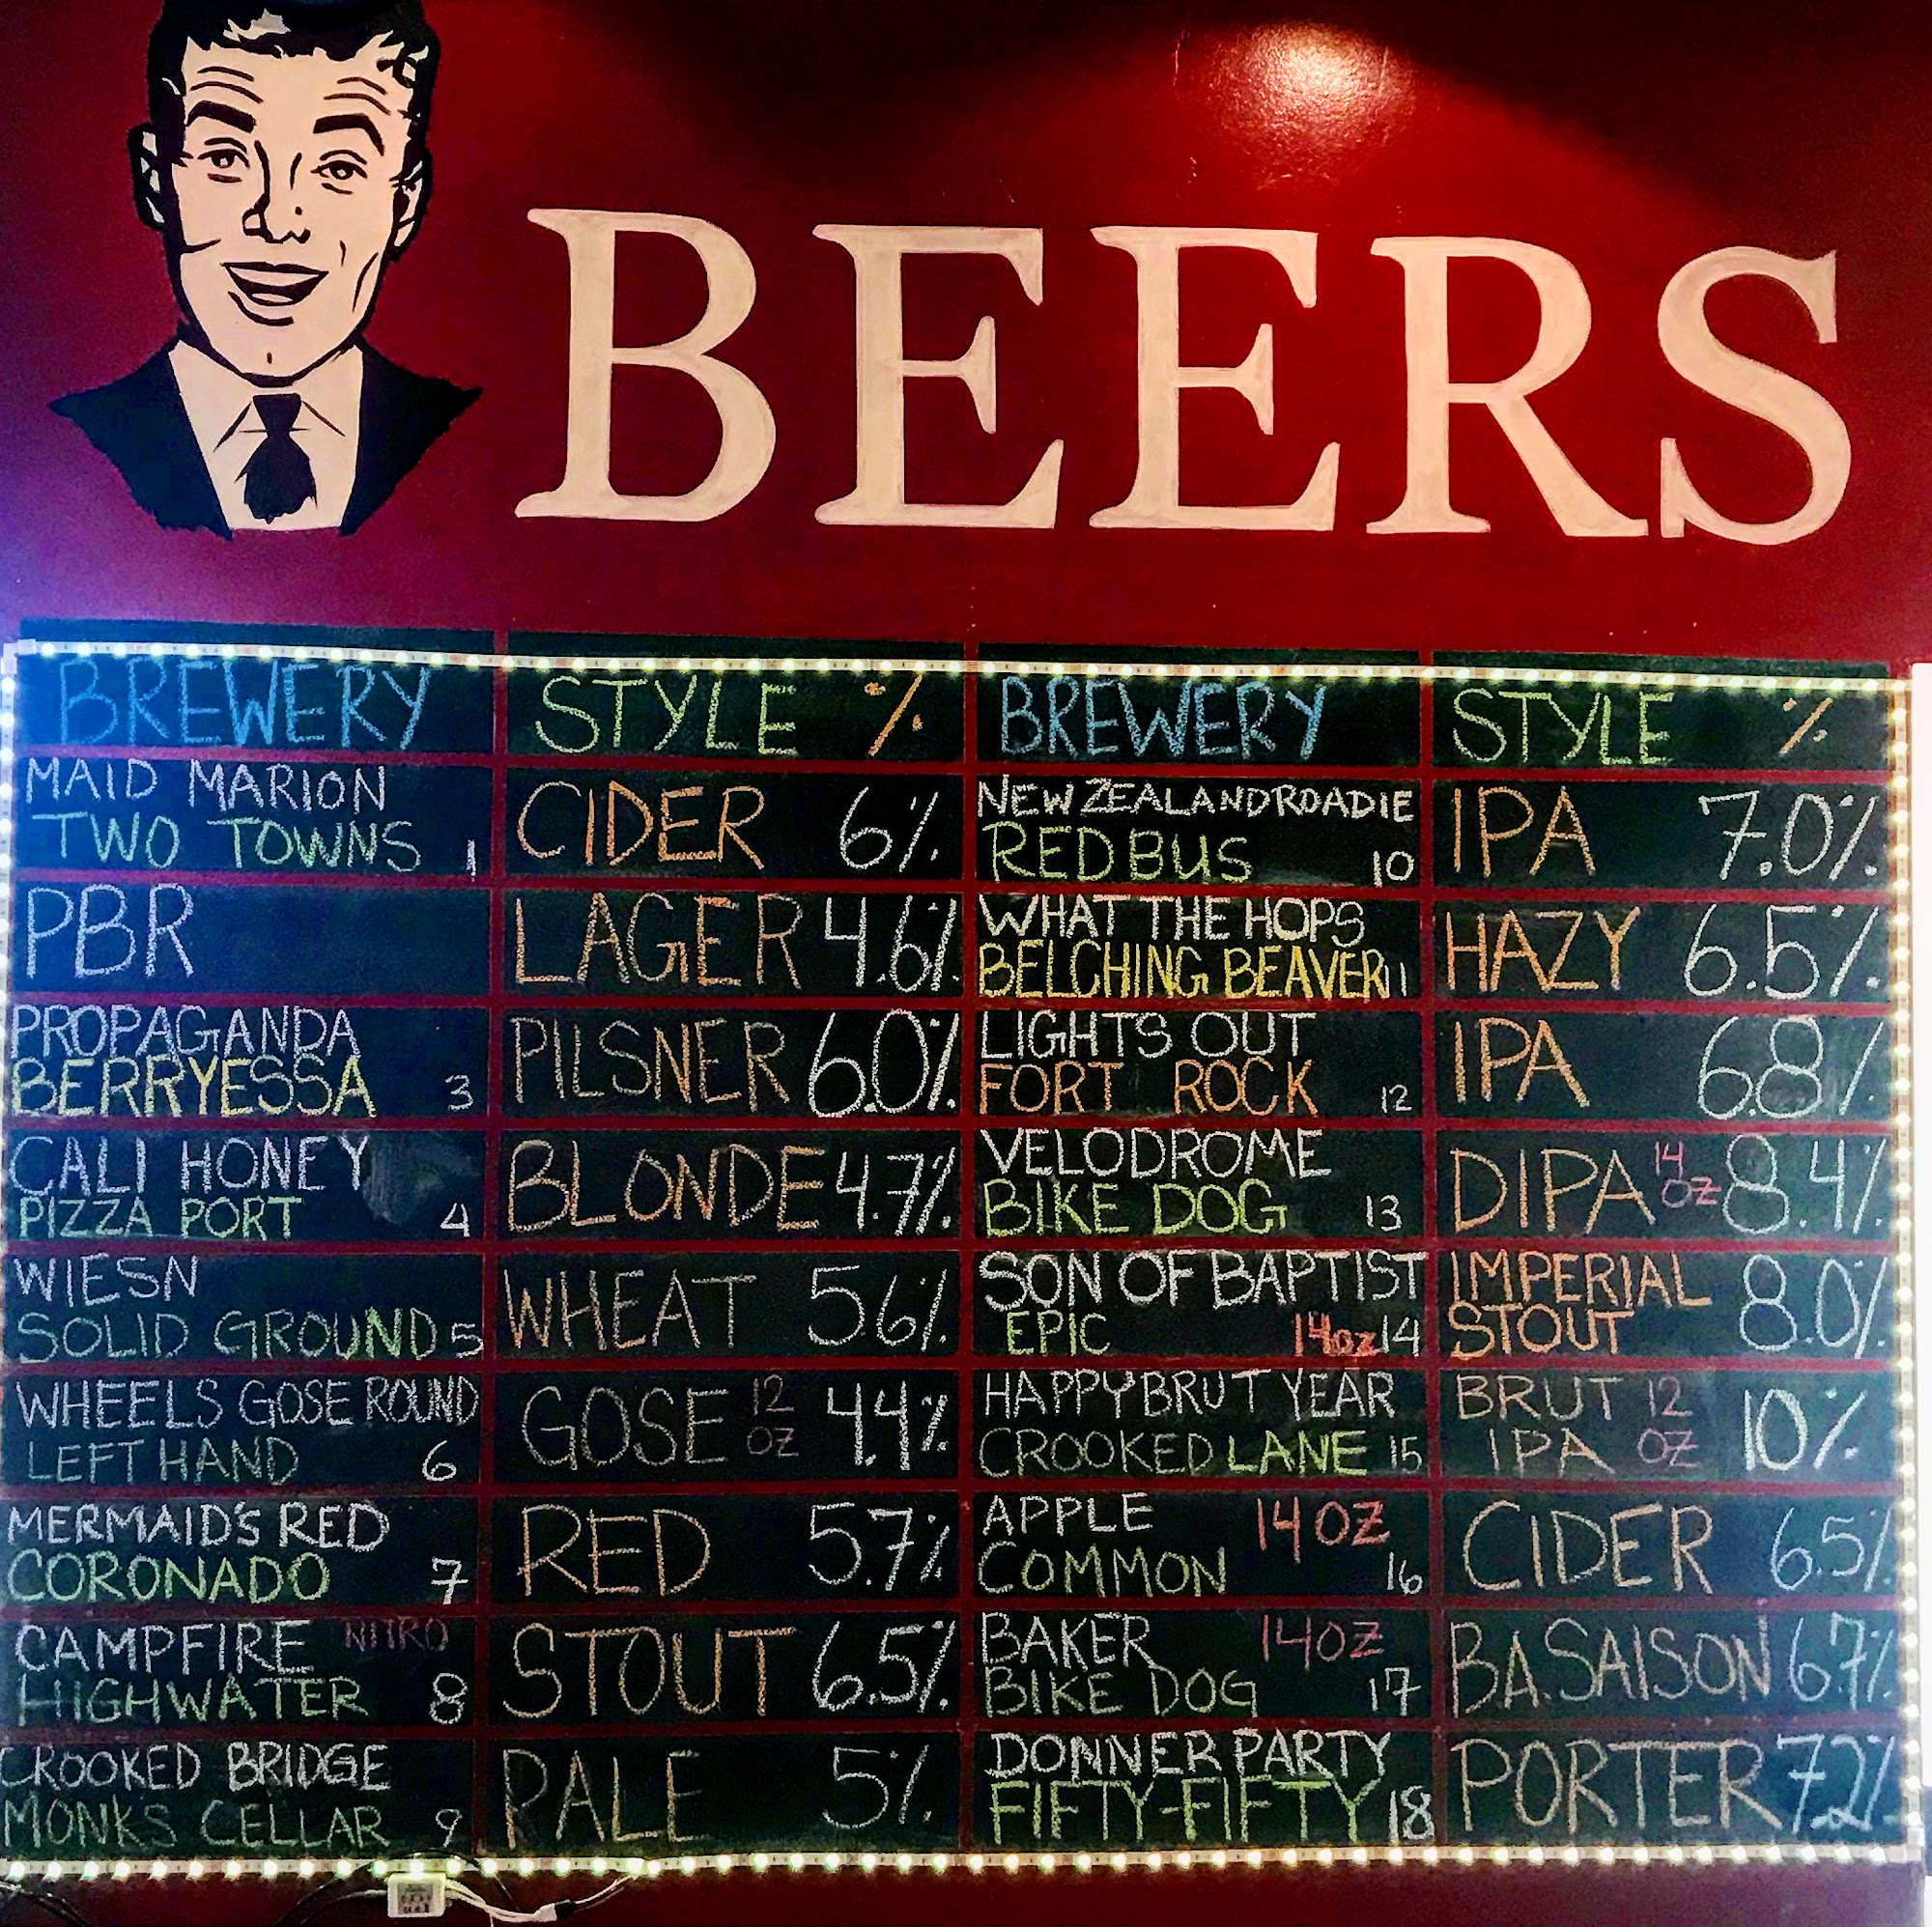 BEERS
BREWERY STYLE % BREWERY STYLE %
MAID MARION
TWO TOWNS 1
CIDER 6%
NEW ZEALAND ROADIE
RED BUS 10
IPA 7.0%
PBR
LAGER 4.6%
WHAT THE HOPS
BELCHING BEAVER 11
HAZY 6.5%
PROPAGANDA
BERRYESSA 3
PILSNER 6.0%
LIGHTS OUT
FORT ROCK 12
IPA 6.8%
CALI HONEY
PIZZA PORT 4
BLONDE 4.7%
VELODROME
BIKE DOG 13
DIPA 14 OZ 8.4%
WIESN
SOLID GROUND 5
WHEAT 5.6%
SON OF BAPTIST
EPIC 14oz 14
IMPERIAL
STOUT 8.0%
WHEELS GOSE ROUND
LEFT HAND 6
GOSE 12 OZ 4.4%
HAPPY BRUT YEAR
CROOKED LANE 15
BRUT 12
IPA OZ 10%
MERMAID'S RED
CORONADO 7
RED 5.7%
APPLE 14 OZ
COMMON 16
CIDER 6.5%
CAMPFIRE NITRO
HIGHWATER 8
STOUT 6.5%
BAKER 14OZ
BIKE DOG 17
BA.SAISON 6.7%
CROOKED BRIDGE
MONKS CELLAR 9
PALE 5%
DONNER PARTY
FIFTY-FIFTY 18
PORTER 7.2%